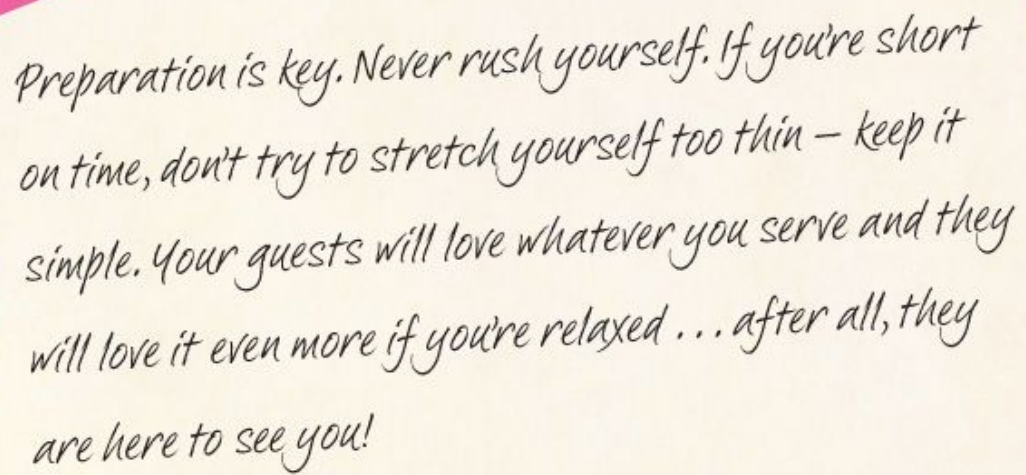 Preparation is key. Never rush yourself. If you're short
on time, don't try to stretch yourself too thin – keep it
simple. Your guests will love whatever you serve and they
will love it even more if you're relaxed ... after all, they
are here to see you!